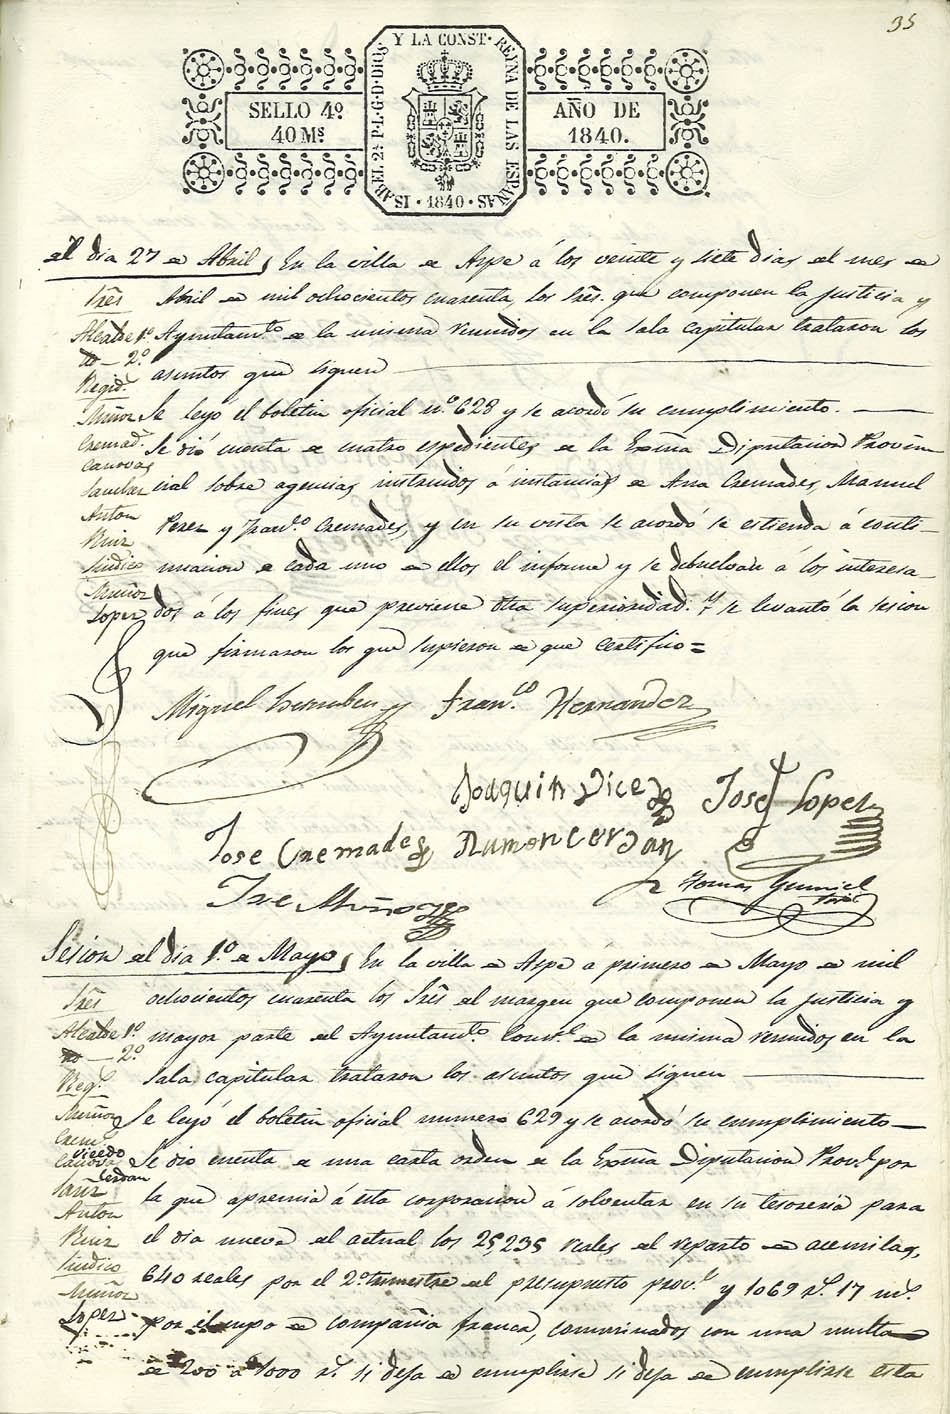 35
Y LA CONST. REYNA DE LAS ESPAÑAS
ISABEL 2ª P.L.G.D.DIOS
1840
SELLO 4º
40 Ms
AÑO DE
1840.
del dia 27 de Abril, En la villa de Aspe á los veinte y siete dias del mes de
Sres Abril de mil ochocientos cuarenta, los Sres. que componen la Justicia y
Alcalde 1º Ayuntamto. de la misma reunidos en la sala capitular trataron los
no — 2º asuntos que siguen
Regidr.
Muñoz Se leyó el boletin oficial nº 628 y se acordó su cumplimiento.
Cremads. Se dió cuenta de cuatro espedientes de la Exma Diputacion Provin
Canovas
Sanchez cial sobre agencias instruidos á instancias de Ana Cremades, Manuel
Anton Perez y Franco. Cremades, y en su vista se acordó se estienda á conti-
Ruiz
Sindico nuacion de cada uno de ellos el informe y se debuelvan á los interesa-
Muñoz
Lopez dos á los fines que previene dha superioridad. Y se levantó la sesion
que firmaron los que supieron de que certifico=
Miguel Franco. Hernandez
Joaquin Vicedo Jose Lopez
Jose Cremades Ramon Cerdan
Jose Muñoz Tomas Gumiel
Srio
Sesion del dia 1º de Mayo, En la villa de Aspe á primero de Mayo de mil
Sres ochocientos cuarenta los Sres del margen que componen la Justicia y
Alcalde 1º mayor parte del Ayuntamto. Constl. de la misma reunidos en la
no — 2º
Regs. Sala capitular trataron los asuntos que siguen
Muñoz Se leyó el boletin oficial numero 629 y se acordó su cumplimiento
Crem
Vicedo
Canovas Se dio cuenta de una carta orden de la Exma Diputacion Provl. por
Cerdan
Sanz la que apremia á esta corporacion á solventar en su tesoreria para
Anton
Ruiz el dia nueve del actual los 25235 reales del reparto de acemilas,
Sindico
Muñoz 640 reales por el 2º trimestre del presupuesto provl. y 1069 rs. 17 ms.
Lopez por el cupo de compañia franca, conminados con una multa
de 200 á 1000 rs. si deja de cumplirse si deja de cumplirse esta